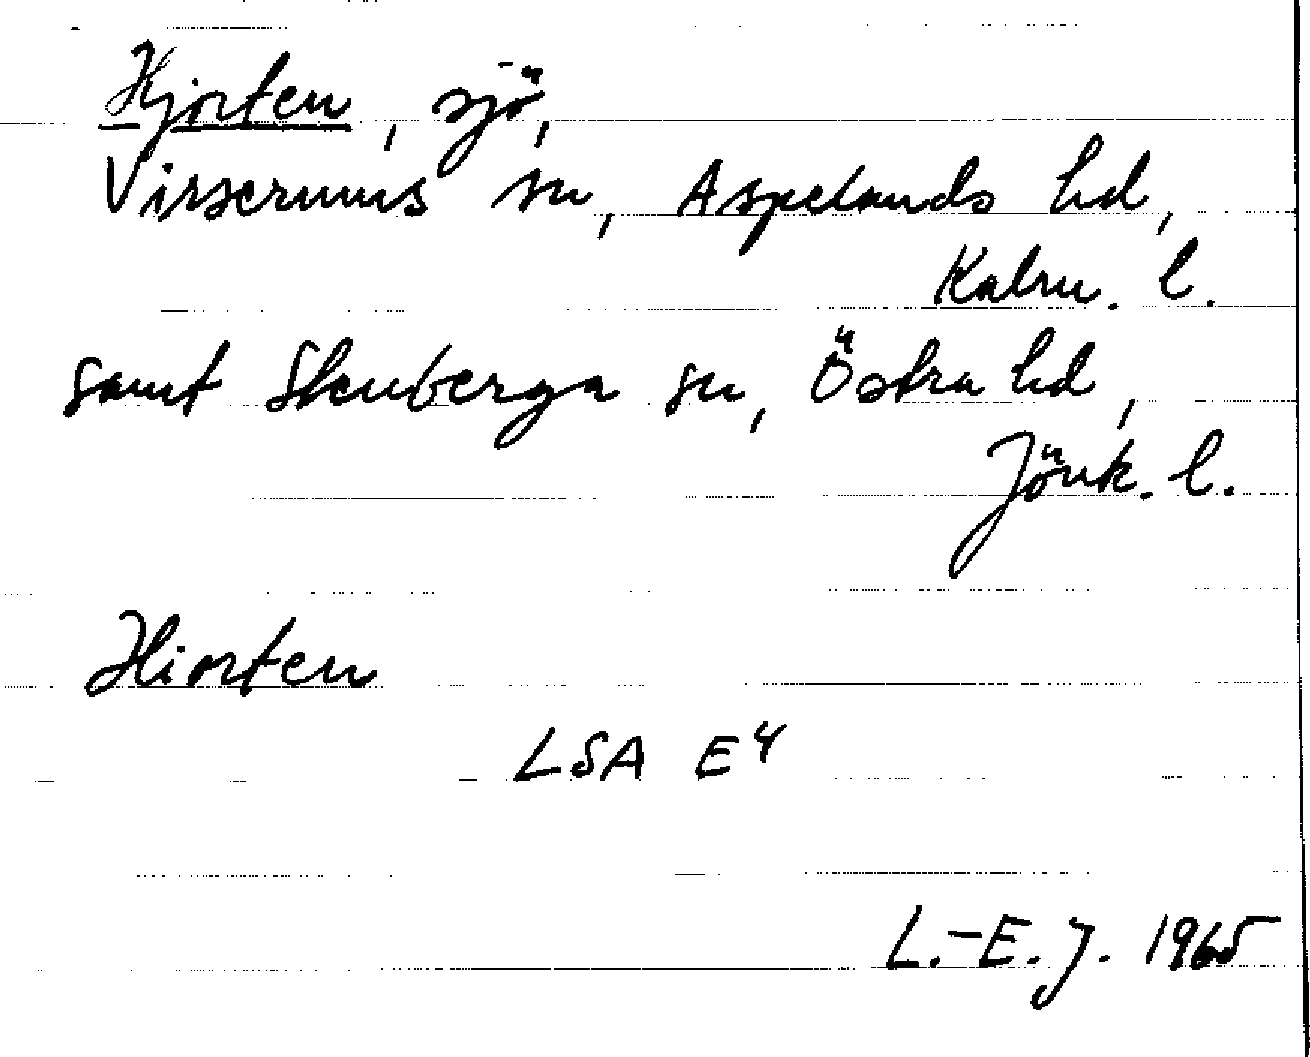 Hjorten, sjö,
Virserums sn, Aspelands hd,
Kalm. l.
samt Stenberga sn, Östra hd,
Jönk. l.
Hiorten
LSA E4
L.-E. J. 1965